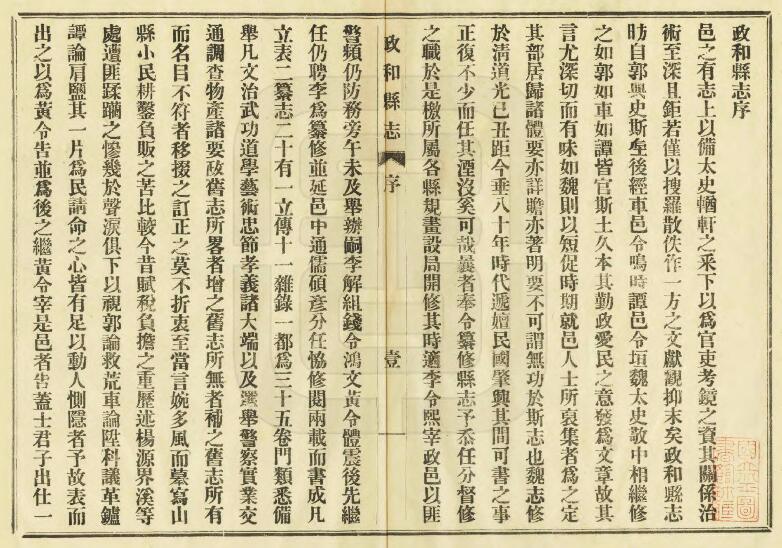 政和縣志序
邑之有志上以備太史輶軒之采下以爲官吏考鏡之資其關係治
術至深且鉅若僅以搜羅散佚作一方之文獻觀抑末矣政和縣志
昉自郭輿史斯垕後經車邑令鳴時譚邑令垣魏太史敬中相繼修
之如郭如車如譚皆官斯土久本其勤政愛民之意發爲文章故其
言尤深切而有味如魏則以短促時期就邑人士所裒集者爲之定
其部居歸諸體要亦詳贍亦著明要不可謂無功於斯志也魏志修
於淸道光己丑距今垂八十年時代遞嬗民國肇興其間可書之事
正復不少而任其湮沒奚可哉曩者奉令纂修縣志予忝任分督修
之職於是檄所屬各縣規畫設局開修其時適李令熙宰政邑以匪
政和縣志
序
壹
警頻仍防務旁午未及舉辦嗣李解組錢令鴻文黃令體震後先繼
任仍聘李爲纂修並延邑中通儒碩彥分任恊修閱兩載而書成凡
立表二纂志二十有一立傳十一雜錄一都爲三十五卷門類悉備
舉凡文治武功道學藝術忠節孝義諸大端以及選舉警察實業交
通調查物產諸要政舊志所畧者增之舊志所無者補之舊志所有
而名目不符者移掇之訂正之莫不折衷至當言婉多風而摹寫山
縣小民耕鑿負販之苦比較今昔賦稅負擔之重歷述楊源界溪等
處遭匪蹂躪之慘幾於聲淚俱下以視郭論救荒車論陞科議革鑪
譚論肩鹽其一片爲民請命之心皆有足以動人惻隱者予故表而
出之以爲黃令告並爲後之繼黃令宰是邑者告蓋士君子出仕一